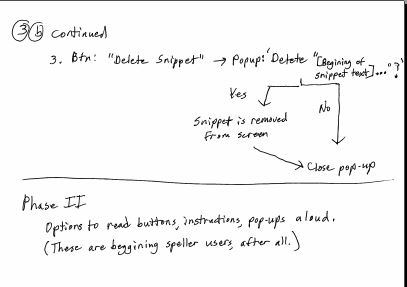 3b continued
3. Btn: "Delete Snippet" → Popup: 'Delete "[Begining of
snippet text]..."?'
Yes
No
Snippet is removed
from screen
Close pop-up
Phase II
Options to read buttons, instructions, pop-ups aloud.
(These are beggining speller users, after all.)